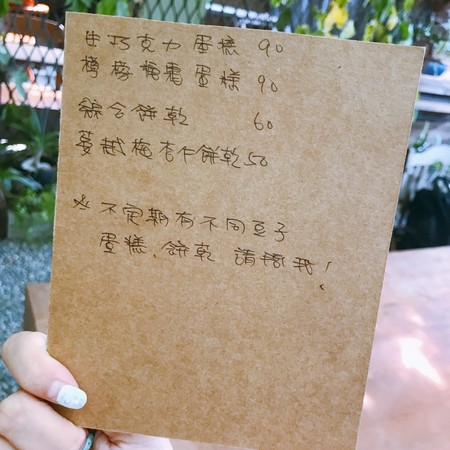 生巧克力蛋糕 90
檸檬糖霜蛋糕 90
綜合餅乾 60
蔓越梅杏仁餅乾 50
※ 不定期有不同豆子
蛋糕、餅乾 請問我!